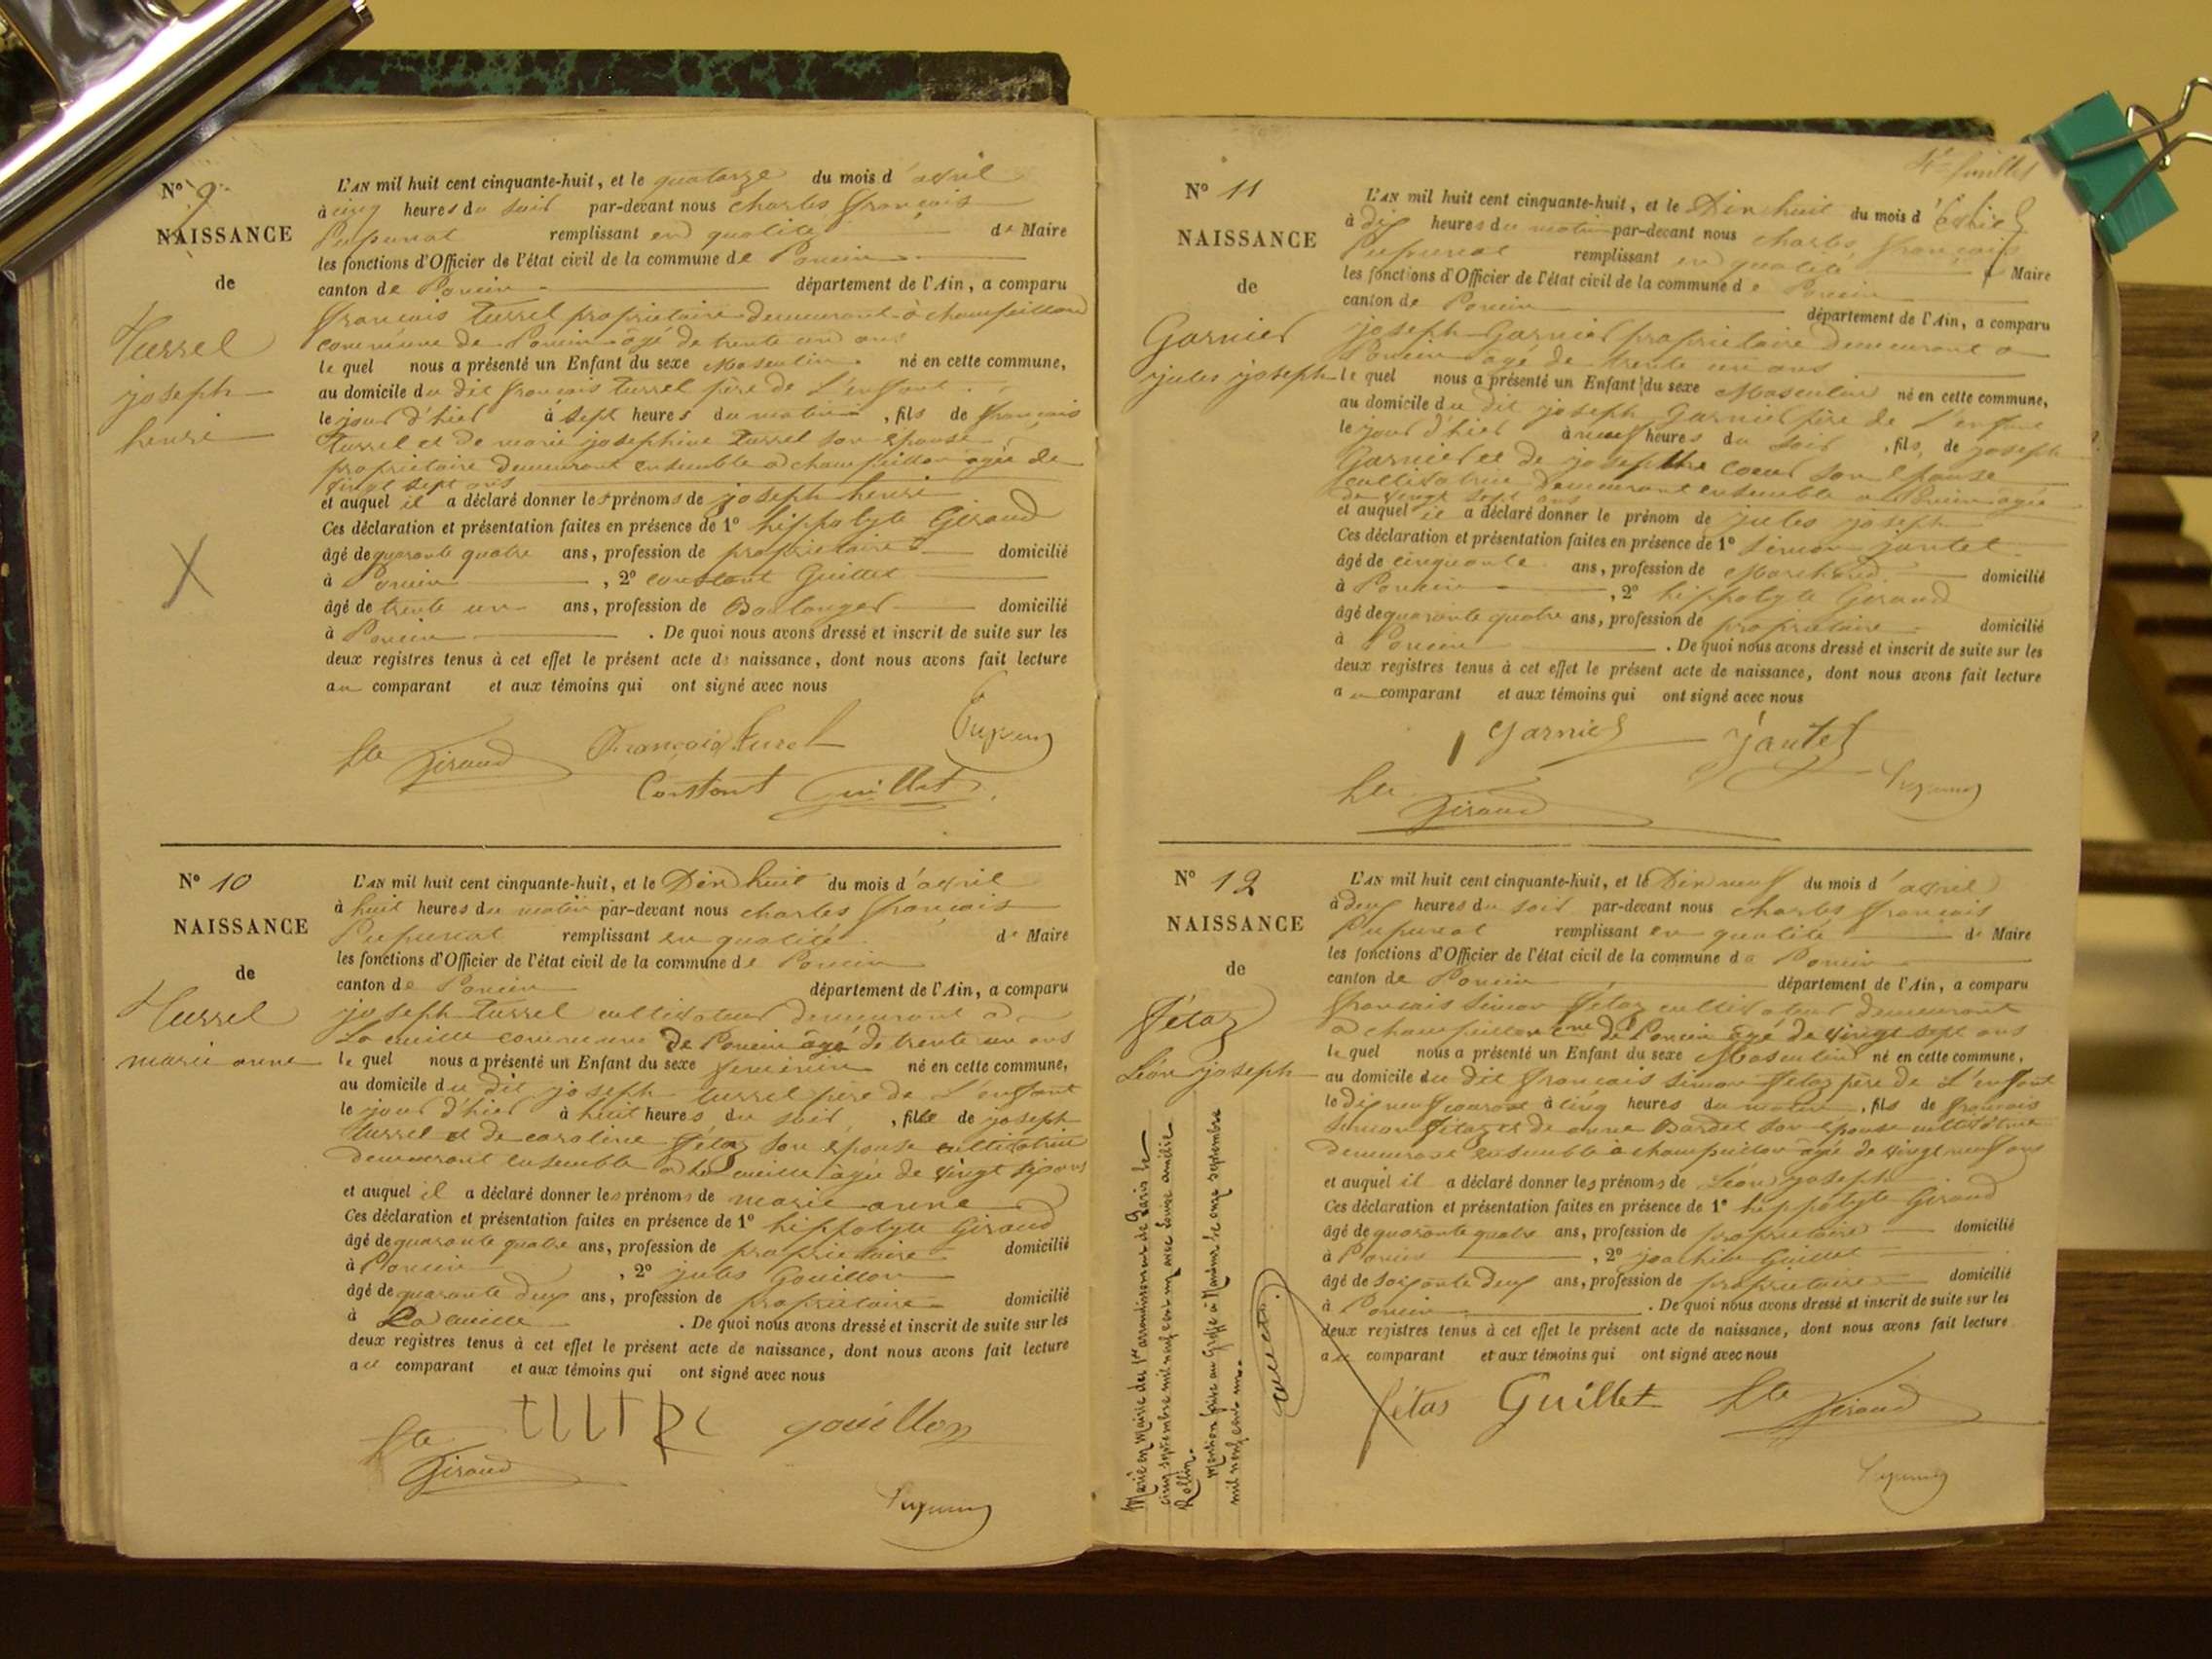 N° 9
NAISSANCE
de
Turrel
joseph
henri
L'AN mil huit cent cinquante-huit, et le quatorze du mois d'avril
à cinq heures du soir par-devant nous charles françois
remplissant en qualité de Maire
les fonctions d'Officier de l'état civil de la commune de Poncin
canton de Poncin département de l'Ain, a comparu
françois turrel propriétaire demeurant à champeillon
commune de Poncin âgé de trente un ans
le quel nous a présenté un Enfant du sexe Masculin né en cette commune,
au domicile du dit françois turrel père de l'enfant
le jour d'hier à sept heures du matin, fils de françois
turrel et de marie josephine turrel son épouse
propriétaire demeurant ensemble a champeillon agée de
vingt sept ans
et auquel il a déclaré donner les prénoms de joseph henri
Ces déclaration et présentation faites en présence de 1° hippolyte Giraud
âgé de quarante quatre ans, profession de propriétaire domicilié
à Poncin, 2° constant Guillet
âgé de trente un ans, profession de Boulanger domicilié
à Poncin. De quoi nous avons dressé et inscrit de suite sur les
deux registres tenus à cet effet le présent acte de naissance, dont nous avons fait lecture
au comparant et aux témoins qui ont signé avec nous
hte Giraud François turel
Constant Guillet
N° 10
NAISSANCE
de
Turrel
marie anne
L'AN mil huit cent cinquante-huit, et le Dix huit du mois d'avril
à huit heures du matin par-devant nous charles françois
remplissant en qualité de Maire
les fonctions d'Officier de l'état civil de la commune de Poncin
canton de Poncin département de l'Ain, a comparu
joseph turrel cultivateur demeurant a
La cueille commune de Poncin âgé de trente un ans
le quel nous a présenté un Enfant du sexe feminin né en cette commune,
au domicile du dit joseph turrel père de l'enfant
le jour d'hier à huit heures du soir, fille de joseph
turrel et de caroline fétaz son épouse cultivatrice
demeurant ensemble a La cueille âgée de vingt six ans
et auquel il a déclaré donner les prénoms de marie anne
Ces déclaration et présentation faites en présence de 1° hippolyte Giraud
âgé de quarante quatre ans, profession de propriétaire domicilié
à Poncin, 2° jules Gouillon
âgé de quarante deux ans, profession de propriétaire domicilié
à La cueille. De quoi nous avons dressé et inscrit de suite sur les
deux registres tenus à cet effet le présent acte de naissance, dont nous avons fait lecture
au comparant et aux témoins qui ont signé avec nous
hte Giraud gouillon
N° 11
NAISSANCE
de
Garnier
jules joseph
L'AN mil huit cent cinquante-huit, et le Dix huit du mois d'avril
à dix heures du matin par-devant nous charles françois
remplissant en qualité de Maire
les fonctions d'Officier de l'état civil de la commune de Poncin
canton de Poncin département de l'Ain, a comparu
joseph Garnier propriétaire demeurant a
Poncin agé de trente un ans
le quel nous a présenté un Enfant du sexe Masculin né en cette commune,
au domicile du dit joseph Garnier père de l'enfant
le jour d'hier à neuf heures du soir, fils de joseph
Garnier et de josephthe coeur son épouse
cultivatrice demeurant ensemble a Poncin agée
de vingt sept ans
et auquel il a déclaré donner le prénom de jules joseph
Ces déclaration et présentation faites en présence de 1° simon jantet
âgé de cinquante ans, profession de Marchand domicilié
à Poncin, 2° hippolyte Giraud
âgé de quarante quatre ans, profession de propriétaire domicilié
à Poncin. De quoi nous avons dressé et inscrit de suite sur les
deux registres tenus à cet effet le présent acte de naissance, dont nous avons fait lecture
au comparant et aux témoins qui ont signé avec nous
Garnier jantet
hte Giraud
N° 12
NAISSANCE
de
fétaz
Léon joseph
L'AN mil huit cent cinquante-huit, et le Dix neuf du mois d'avril
à deux heures du soir par-devant nous charles françois
remplissant en qualité de Maire
les fonctions d'Officier de l'état civil de la commune de Poncin
canton de Poncin département de l'Ain, a comparu
françois simon fétaz cultivateur demeurant
a champeillon cne de Poncin âgé de vingt sept ans
le quel nous a présenté un Enfant du sexe Masculin né en cette commune,
au domicile du dit françois simon fétaz père de l'enfant
le dix neuf courant à cinq heures du matin, fils de françois
simon fétaz et de anne Bardet son épouse cultivatrice
demeurant ensemble à champeillon âgée de vingt neuf ans
et auquel il a déclaré donner les prénoms de Léon joseph
Ces déclaration et présentation faites en présence de 1° hippolyte Giraud
âgé de quarante quatre ans, profession de propriétaire domicilié
à Poncin, 2° joachim Guillet
âgé de soixante deux ans, profession de propriétaire domicilié
à Poncin. De quoi nous avons dressé et inscrit de suite sur les
deux registres tenus à cet effet le présent acte de naissance, dont nous avons fait lecture
au comparant et aux témoins qui ont signé avec nous
fétas Guillet hte Giraud
Marié en Mairie du arrondissement de Paris le
cinq septembre mil neuf cent onze avec Louise amélie
Rollin.
Mention faite au Greffe à Nantua le onze septembre
mil neuf cent onze.